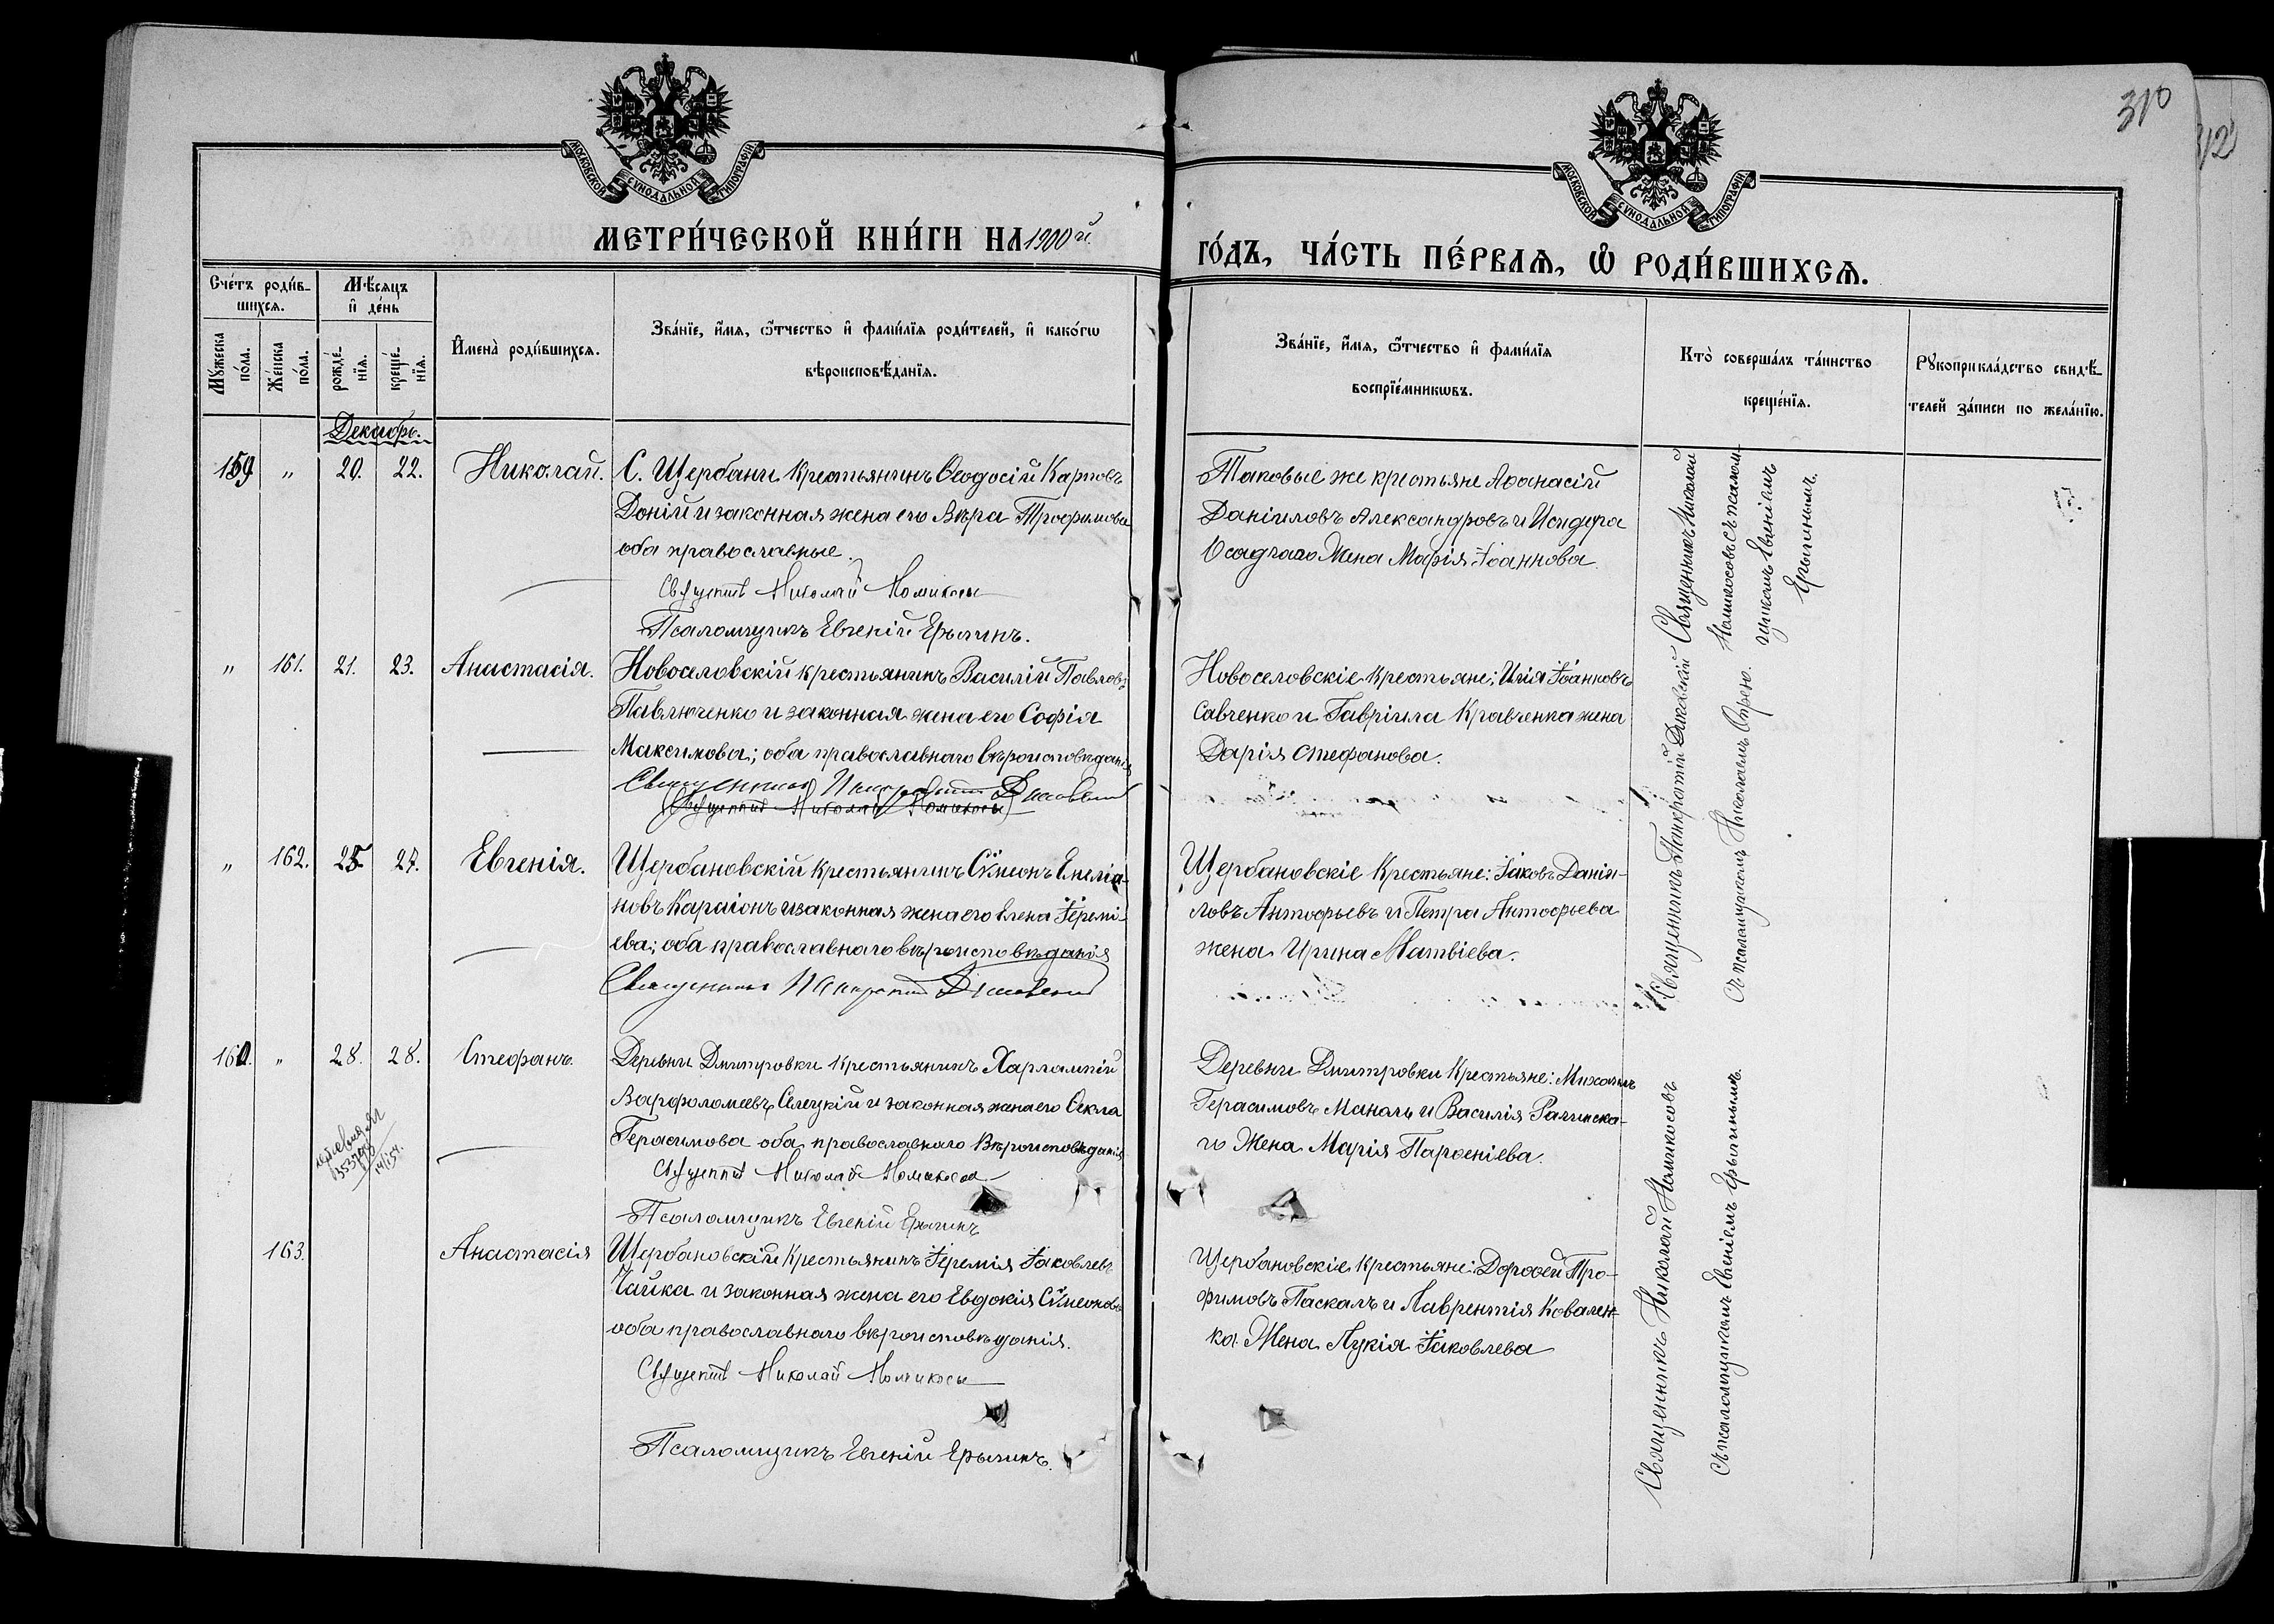 310
12
МОСКОВСКОЙ СѴНОДАЛЬНОЙ ТИПОГРАФІИ
МОСКОВСКОЙ СѴНОДАЛЬНОЙ ТИПОГРАФІИ
МЕТРИ́ЧЕСКОЙ КНИ́ГИ НА 1900 й
ГО́ДЪ, ЧА́СТЬ ПЕ́РВАѦ, Ѡ҆ РОДИ́ВШИХСѦ.
Сче́тъ роди́в-
шихсѧ.
Мѣ́сѧцъ
и҆ де́нь
Мꙋ́жеска
по́ла.
Же́нска
по́ла.
рожде́-
нїѧ.
креще́-
нїѧ.
И҆мена̀ роди́вшихсѧ.
Зва́нїе, и҆́мѧ, ѻ҆́тчество и҆ фами́лїѧ роди́телей, и҆ како́гѡ
вѣроисповѣ́данїѧ.
Зва́нїе, и҆́мѧ, ѻ҆́тчество и҆ фами́лїѧ
воспрїе́мникѡвъ.
Кто̀ соверша́лъ та́инство
креще́нїѧ.
Рꙋкоприкла́дство свидѣ́-
телей за́писи по жела́нїю.
Декабрь.
159 " 20. 22. Николай.
С. Щербани крестьянинъ Ѳеодосій Карповъ
Доній и законная жена его Вѣра Трофимова
оба православные.
Священникъ Николай
Псаломщикъ Евгеній Ерыгинъ.
Таковые же крестьяне Аѳанасій
Даніиловъ Александровъ и Исидора
Осадчаго Жена Марія Іоаннова.
Священникъ Николай
съ псалом-
щикомъ Евгеніемъ
Ерыгинымъ.
" 161. 21. 23. Анастасія.
Новоселовскій крестьянинъ Василій Павловъ
Павлюченко и законная жена его Софія
Максимова; оба православнаго вѣроисповѣданія
Священникъ Панкратій
Священникъ Николай
Новоселовскіе крестьяне: Илія Іоанновъ
Савченко и Гавріила Кравченка жена
Дарія Стефанова.
Священникъ Панкратій
съ псаломщикомъ Николаемъ
" 162. 25. 27. Евгенія.
Щербановскій крестьянинъ Сѵмеонъ Емеліа-
новъ Караіонъ и законная жена его Елена Іеремі-
ева; оба православнаго вѣроисповѣданія
Священникъ Панкратій
Щербановскіе Крестьяне: Іаковъ Даніи-
ловъ Антофьевъ и Петра Антофьева
жена Ирина Матвіева.
160. " 28. 28. Стефанъ.
Деревни Дмитровки крестьянинъ Харлампій
Варфоломеевъ Селецкій и законная жена его Ѳекла
Герасимова оба православнаго Вѣроисповѣданія
Священникъ Николай
Псаломщикъ Евгеній Ерыгинъ
Деревни Дмитровки Крестьяне: Михаилъ
Герасимовъ Маналь и Василія Рачинска-
го Жена Марія Парѳеніева.
163. Анастасія
Щербановскій Крестьянинъ Іеремія Іаковлевъ
Чайка и законная жена его Евдокія Сѵмеонова
оба православнаго вѣроисповѣданія.
Священникъ Николай
Псаломщикъ Евгеній Ерыгинъ.
Щербановскіе Крестьяне: Дороѳей Тро-
фимовъ Паскалъ и Лаврентія Ковален-
ка Жена Лукія Іаковлева
Священникъ Николай
съ псаломщикомъ Евгеніемъ Ерыгинымъ.